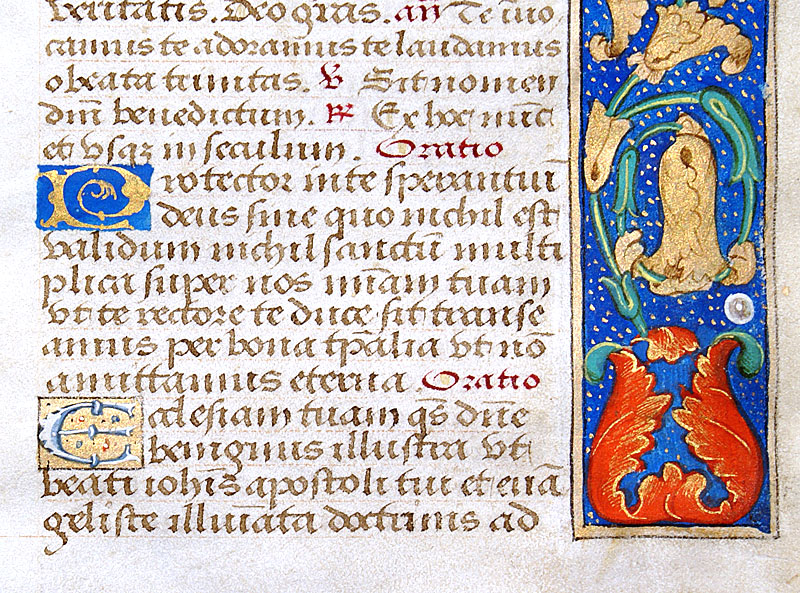 veritatis. Deo gras. añ Te iuo
camus te adoramus te laudamus
o beata trinitas. ℣ Sit nomen
dñi benedictum. ℟ Ex hoc nūc
et vsqȝ in seculum. Oratio
Protector in te sperantum
deus sine quo nichil est
validum nichil sanctū multi
plica super nos miam̄ tuam
vt te rectore te duce sic transe
amus per bona tpalia vt nō
amittamus eterna. Oratio
Ecclesiam tuam qs̄ dñe
benignus illustra vt
beati iohis̄ apostoli tui et euā
geliste illuiata doctrinis ad